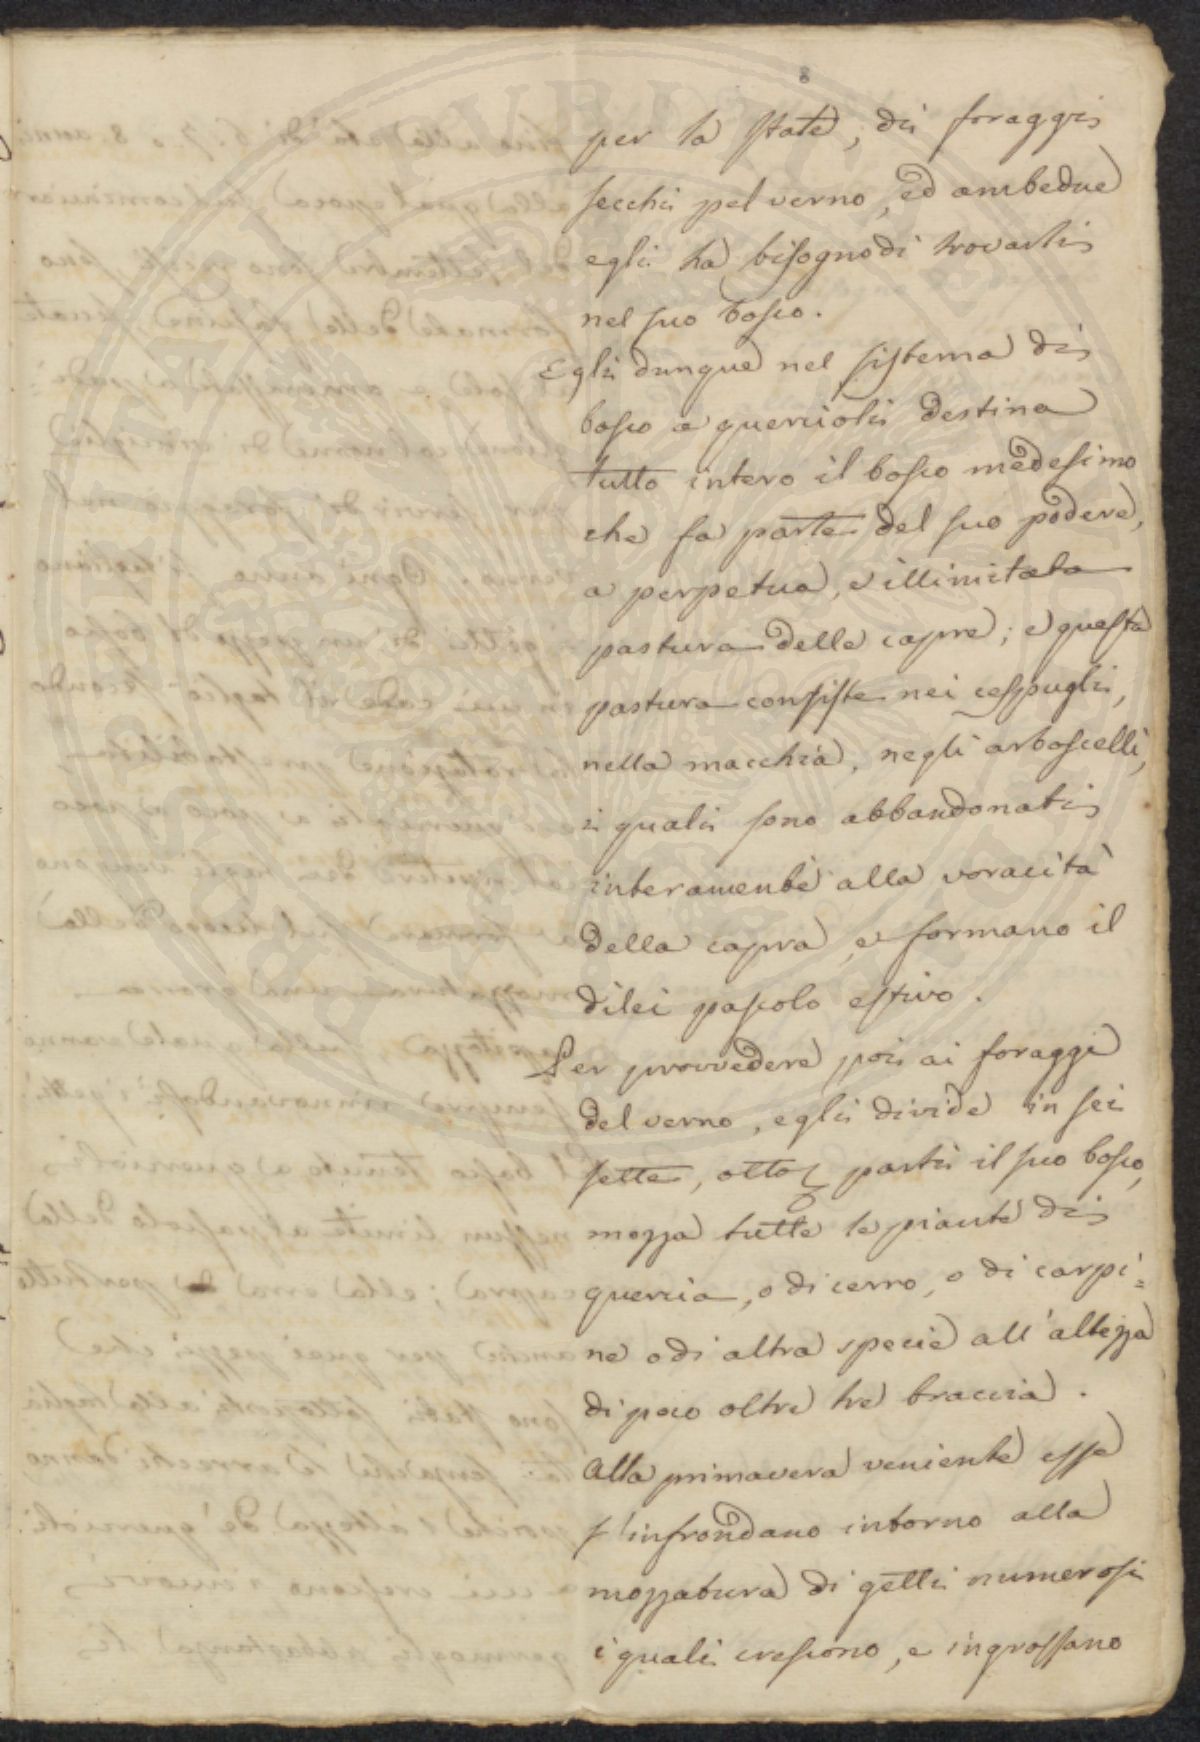 8
per la state, di foraggi
secchi pel verno, ed ambedue
egli ha bisogno di trovarli
nel suo bosco.
Egli dunque nel sistema di
bosco a quercioli destina
tutto intero il bosco medesimo
che fa parte del suo podere,
a perpetua, e illimitata
pastura delle capre; e questa
pastura consiste nei cespugli,
nella macchia, negli arboscelli,
i quali sono abbandonati
interamente alla voracità
della capra, e formano il
di lei pascolo estivo.
Per provvedere poi ai foraggi
del verno, egli divide in sei
sette, otto parti il suo bosco,
mozza tutte le piante di
quercia, o di cerro, o di carpi=
ne o di altra specie all'altezza
di poco oltre tre braccia.
Alla primavera veniente esse
s'infrondano intorno alla
mozzatura di getti numerosi
i quali crescono, e ingrossano